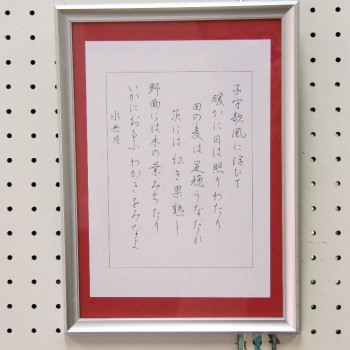 子守歌風に浮びて
暖かに日は照りわたり
田の麦は足穂うなだれ
茨には紅き果熟し
野面には木の葉みちたり
いかにおもふわかきをみなよ
水無月